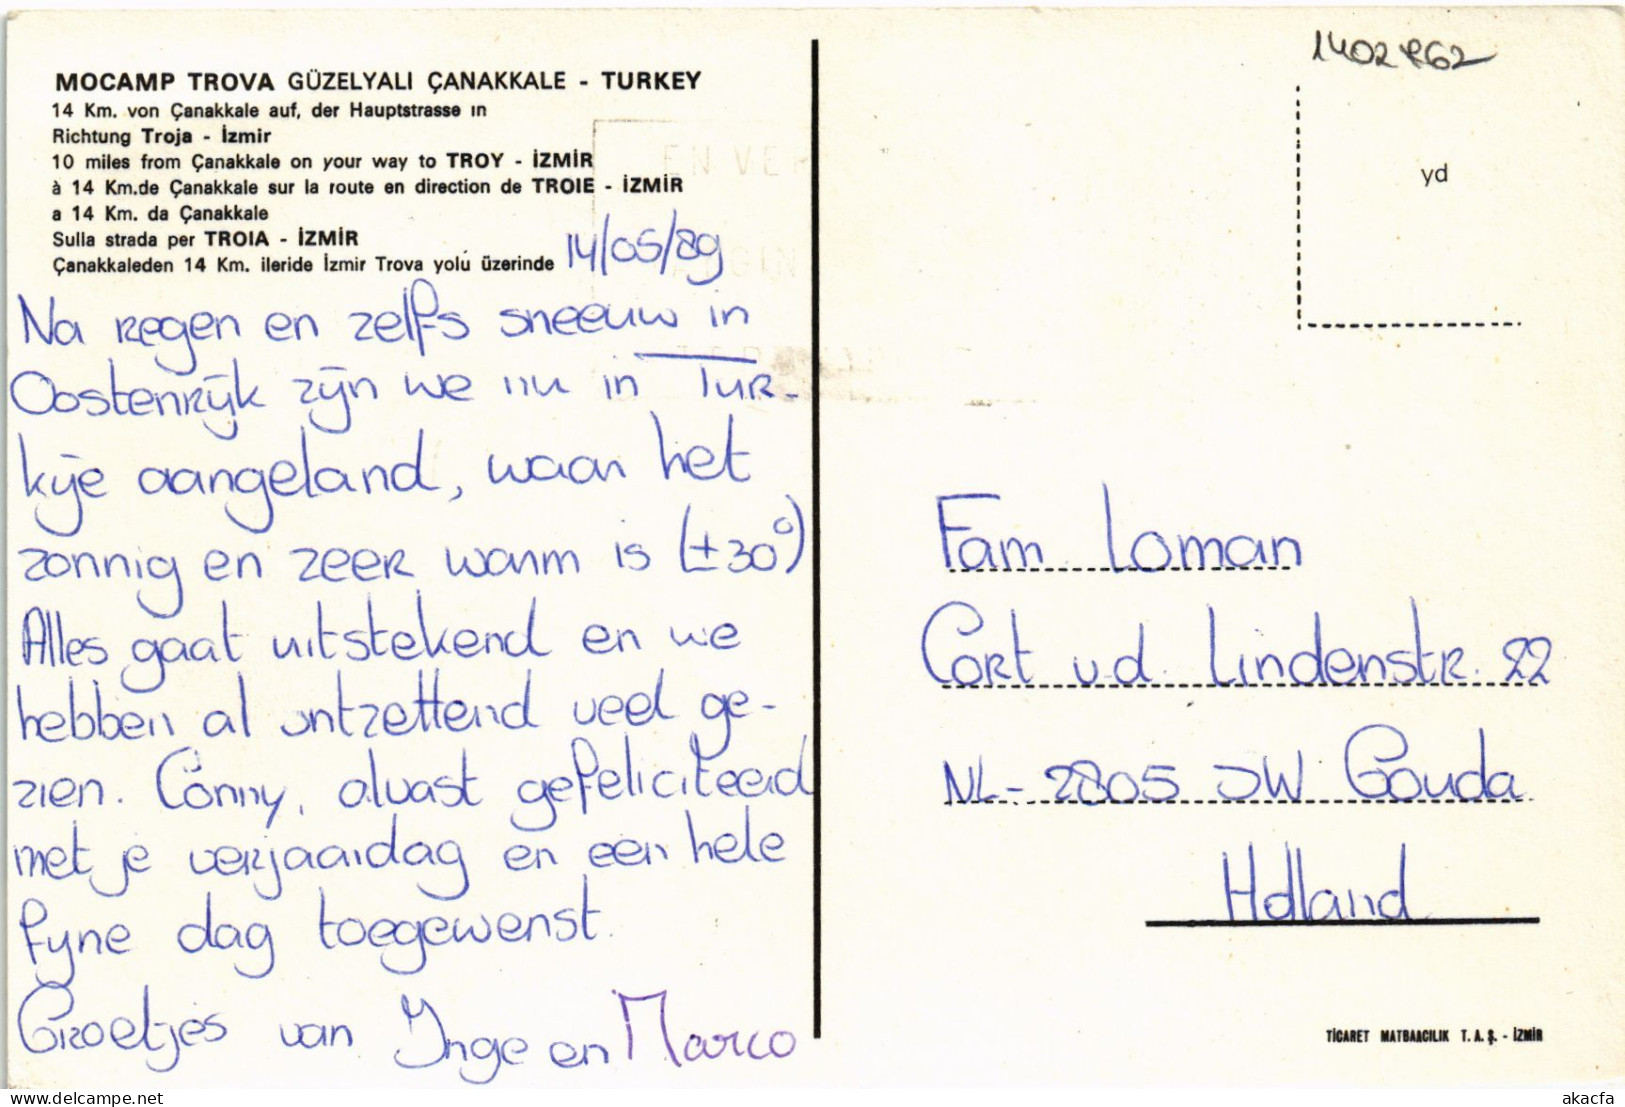 MOCAMP TROVA GÜZELYALI ÇANAKKALE - TURKEY
14 Km. von Çanakkale auf, der Hauptstrasse ın
Richtung Troja - İzmir
10 miles from Çanakkale on your way to TROY - İZMİR
à 14 Km.de Çanakkale sur la route en direction de TROIE - İZMİR
a 14 Km. da Çanakkale
Sulla strada per TROIA - İZMİR
Çanakkaleden 14 Km. ileride İzmir Trova yolu üzerinde
14/05/89
Na regen en zelfs sneeuw in
Oostenrijk zijn we nu in Tur-
kije aangeland, waar het
zonnig en zeer warm is (±30°)
Alles gaat uitstekend en we
hebben al ontzettend veel ge-
zien. Conny, alvast gefeliciteerd
met je verjaardag en een hele
fijne dag toegewenst.
Groetjes van Inge en Marco
EN VER
1402762
yd
Fam. Loman
Cort v.d. Lindenstr. 22
NL-2805 JW Gouda
Holland
TİCARET MATBAACILIK T.A.Ş. - İZMİR
delcampe.net
akacfa